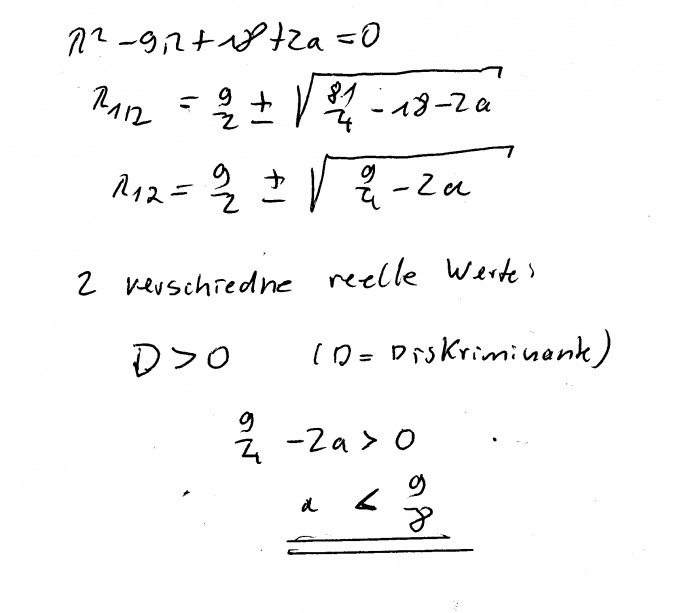 λ² - 9λ + 18 + 2a = 0
λ1/2 = 9/2 ± √(81/4 - 18 - 2a)
λ12 = 9/2 ± √(9/4 - 2a)
2 verschiedne reelle Werte:
D > 0 (D = Diskriminante)
9/4 - 2a > 0
a < 9/8